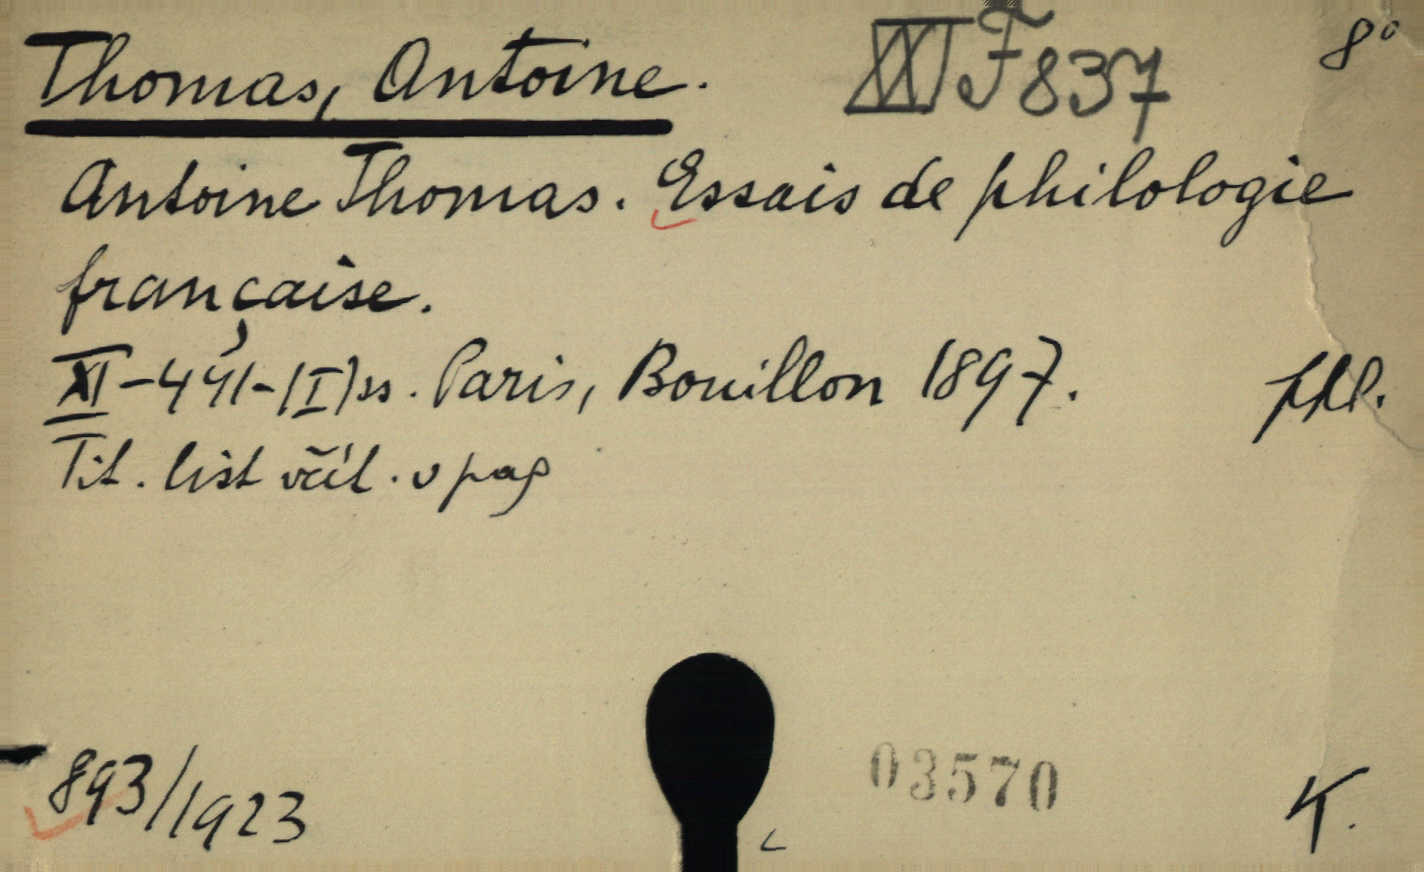 Thomas, Antoine. XXI F 837 8°
Antoine Thomas. Essais de philologie
française.
XI-441-(I)ss. Paris, Bouillon 1897. ppl.
Tit. list včít. v pag
893/1923 03570 K.